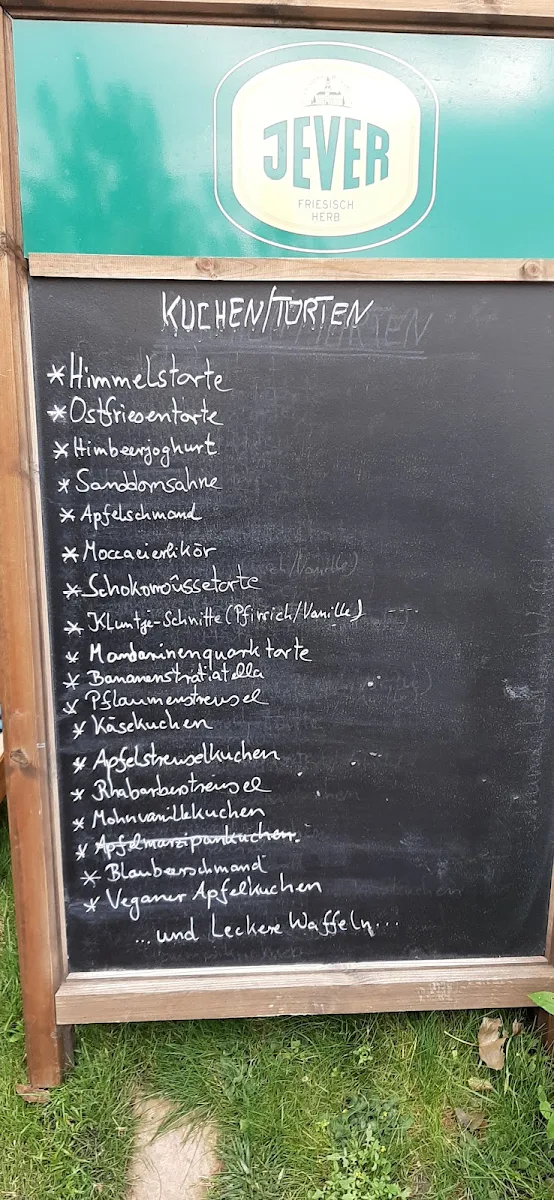 JEVER
FRIESISCH
HERB
KUCHEN/TORTEN
* Himmelstorte
* Ostfriesentorte
* Himbeerjoghurt
* Sanddornsahne
* Apfelschmand
* Moccaeierlikör
* Schokomoûssetorte
* Kluntje-Schnitte (Pfirsich/Vanille)
* Mandarinenquarktorte
* Bananenstratiatella
* Pflaumenstreusel
* Käsekuchen
* Apfelstreuselkuchen
* Rhabarberstreusel
* Mohnvanillekuchen
* Apfelmarzipankuchen
* Blaubeerschmand
* Veganer Apfelkuchen
...und Leckere Waffeln...